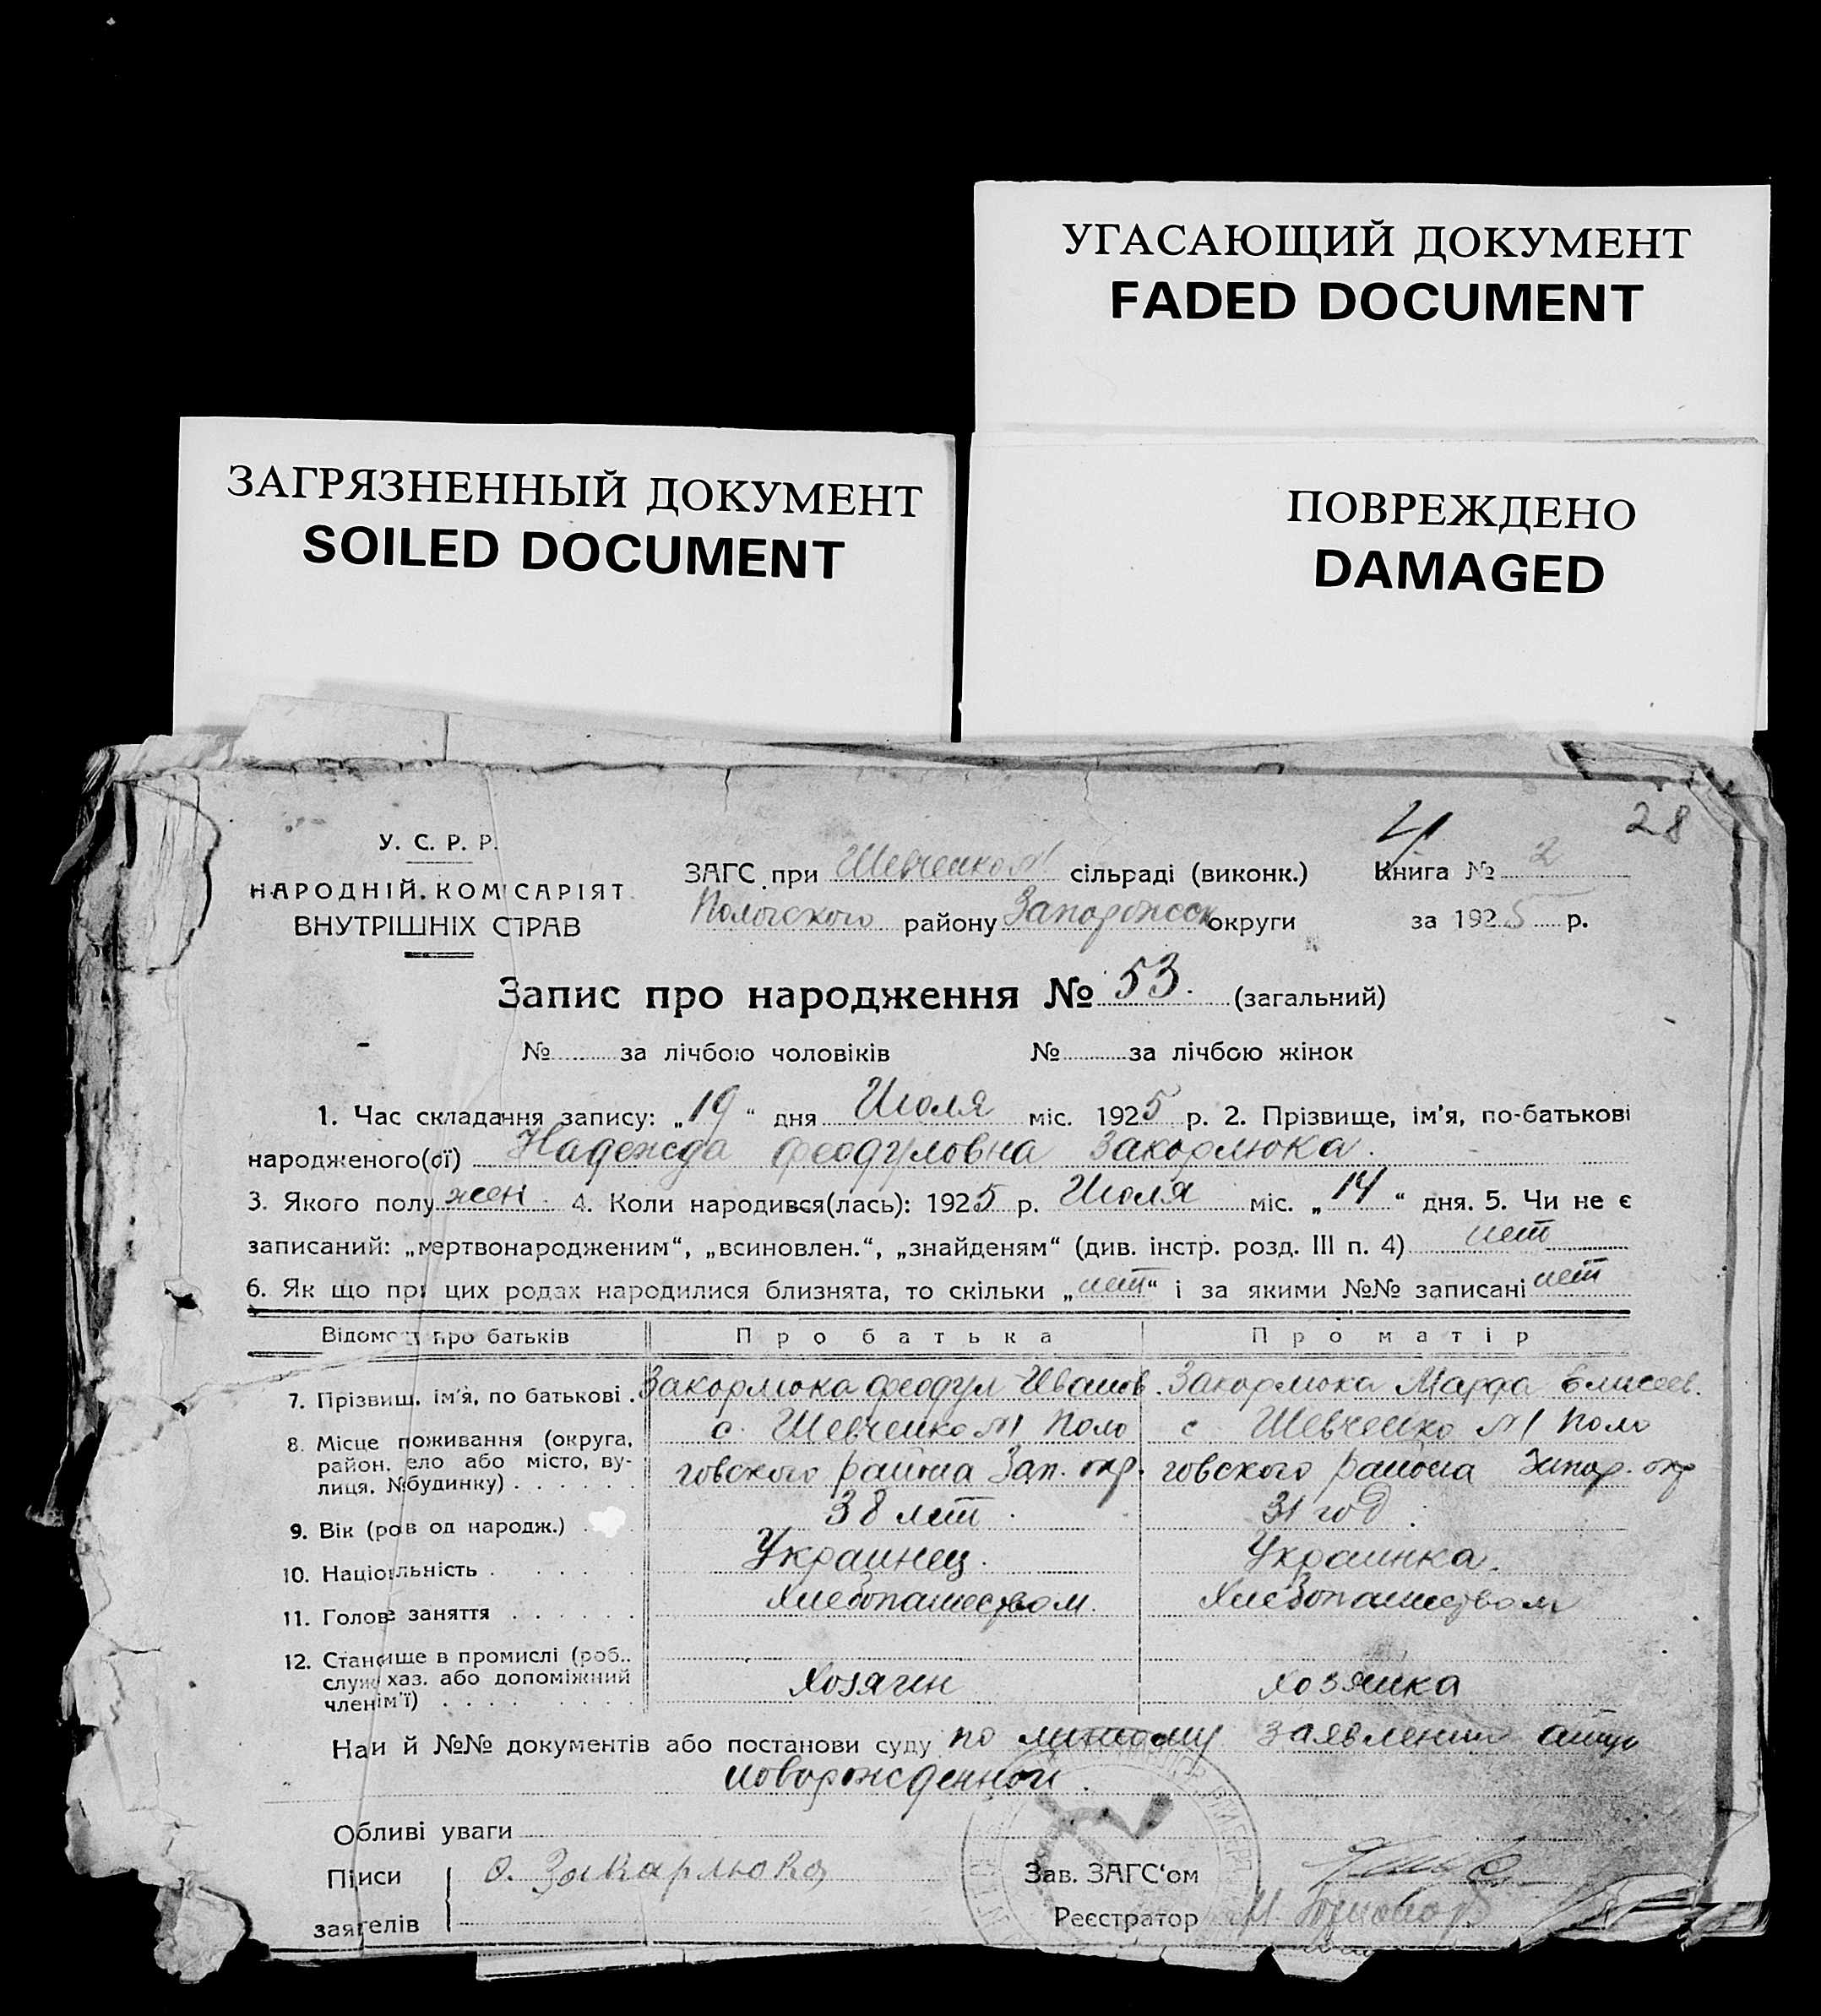 УГАСАЮЩИЙ ДОКУМЕНТ
FADED DOCUMENT
ЗАГРЯЗНЕННЫЙ ДОКУМЕНТ
SOILED DOCUMENT
ПОВРЕЖДЕНО
DAMAGED
28
4
У. С. Р. Р.
НАРОДНІЙ КОМІСАРІЯТ
ВНУТРІШНІХ СПРАВ
ЗАГС при Шевченко №1 сільраді (виконк.) Книга № 2
Пологского району Запорожск округи за 1925 р.
Запис про народження № 53. (загальний)
№ за лічбою чоловіків № за лічбою жінок
1. Час складання запису: „19“ дня Июля міс. 1925 р. 2. Прізвище, ім’я, по-батькові
народженого(ої) Надежда Феодуловна Закорлюка.
3. Якого полу жен. 4. Коли народився(лась): 1925 р. Июля міс. „14“ дня. 5. Чи не є
записаний: „мертвонародженим“, „всиновлен.“, „знайденям“ (див. інстр. розд. III п. 4) нет
6. Як що при цих родах народилися близнята, то скільки „нет“ і за якими №№ записані нет
Відомо про батьків Про батька Про матір
7. Прізвищ, ім’я, по батькові . Закорлюка Феодул Иванов. Закорлюка Марфа Елисеев.
8. Місце поживання (округа, с. Шевченко №1 Поло с Шевченко №1 Поло
район, ело або місто, ву- говского района Зап. окр. говского района Запор. окр
лиця, № будинку)
9. Вік (ро в од народж.) 38 лет. 31 год.
10. Націо льність Украинец. Украинка.
11. Голов заняття Хлебопашеством. Хлебопашеством
12. Стано ище в промислі (роб.,
служ хаз. або допоміжний Хозяин Хозяйка
член ім’ї)
На и й №№ документів або постанови суду по личному заявлению отца
новорожденной.
О бливі уваги
Пі иси О. Закарлюка Зав. ЗАГС‘ом
зая елів Реєстратор